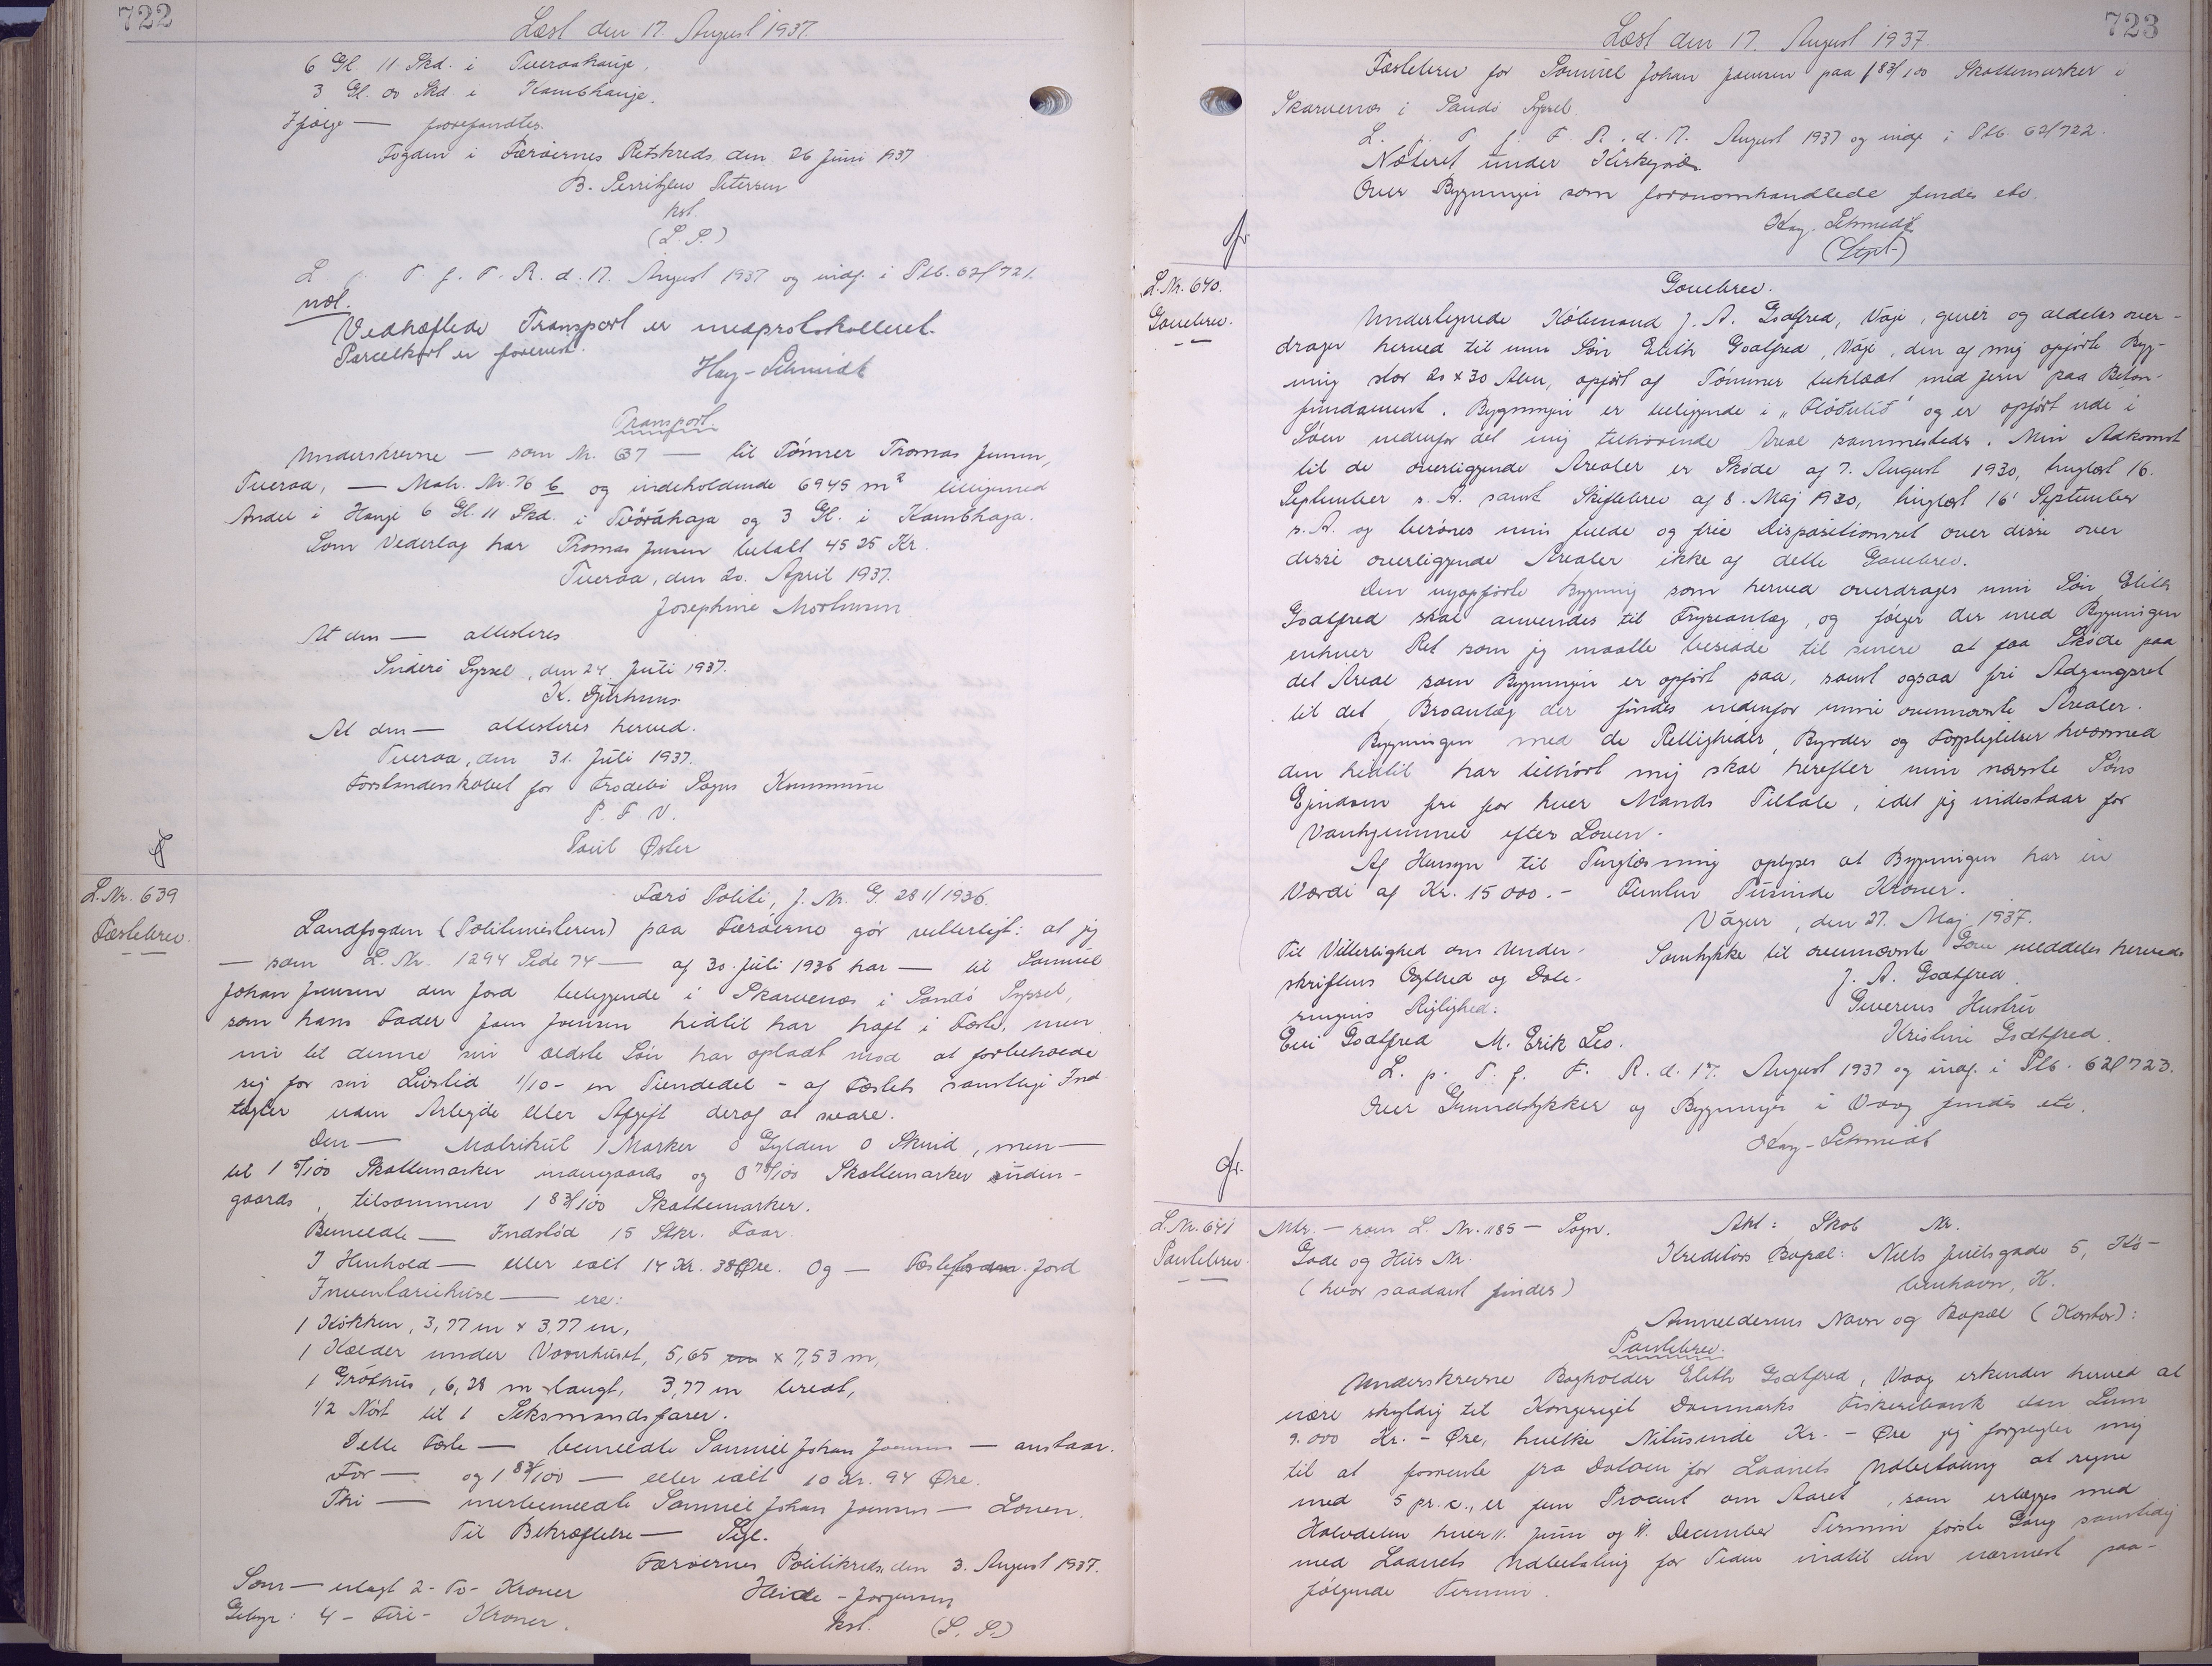 722
Læst den 17. August 1937.
6 Gl. 11 Skd. i Tveraahauje.
3 Gl. 00 Skd. i Kambhauje.
Ifølge — forefandtes.
Fogden i Færøernes Retskreds, den 26 Juni 1937
B. Petersen
kst.
(L. S.)
L p. T. f. F. R. d. 17. August 1937 og indf. i Ptb. 62/721.
not.
Vedhæftede Transport er medprotokolleret.
Parcelkort er forevist.
Hay-Schmidt
Transport.
Underskrevne — som Nr. 637 — til Tømrer Thomas Jensen,
Tveraa, — Matr. Nr. 76 b og indeholdende 6945 m² tilligemed
Andel i Hauje 6 Gl. 11 Skd. i Tvöráhaga og 3 Gl. i Kambhaga.
Som Vederlag har Thomas Jensen betalt 4525 Kr.
Tveraa, den 20. April 1937.
Josephine Mortensen
At den — attesteres
Suderø Syssel, den 24. Juli 1937.
K.
At den — attesteres herved.
Tveraa, den 31. Juli 1937.
Forstanderskabet for Frodebø Sogns Kommune
P. F. V.
Poul Øster
L. Nr. 639
Fæstebrev.
Færø Politi, J. Nr. G. 281/1936.
Landfogden (Politimesteren) paa Færøerne gør vitterligt: at jeg
— som L. Nr. 1294 Side 74 — af 30. Juli 1936 har — til Samuel
Johan Joensen den Jord beliggende i Skarvenes i Sandø Syssel,
som hans Fader Joen Joensen hidtil har haft i Fæste, men
nu til denne sin ældste Søn har opladt mod at forbeholde
sig for sin Livstid 1/10 - en Tiendedel - af Fæstets samtlige Ind-
tægter uden Arbejde eller Afgift deraf at svare.
Den — Matrikul 1 Marker 0 Gylden 0 Skind, men —
til 1 /100 Skattemarker indengaards og 0 /100 Skattemarker uden-
gaards, tilsammen 1 83/100 Skattemarker.
Bemeldte — Indstød 15 Stkr. Faar
I Henhold — eller ialt 14 Kr. 38 Øre. Og — Jord
Inventariehuse — ere:
1 Køkken, 3,77 m x 3,77 m,
1 Kælder under Vaanhuset, 5,65 m x 7,53 m,
1 Gróthús, 6,28 m langt, 3,77 m bredt,
1/2 Nøst til 1 Seksmandsfarer.
Dette Fæste — bemeldte Samuel Johan Joensen — anstaar.
For — og 1 83/100 — eller ialt 10 Kr. 94 Øre.
Thi — merbemeldte Samuel Johan Joensen — Loven.
Til Bekræftelse — Segl.
Færøernes Politikreds, den 3. August 1937.
Som — erlagt 2 - To - Kroner
Heide - Jørgensen
Gebyr: 4 - Fire - Kroner.
kst. (L. S.)
723
Læst den 17. August 1937.
Fæstebrev for Samuel Johan Joensen paa 1 83/100 Skattemarker i
Skarvenes i Sandø Syssel
L. p. T. f. F. R. d. 17. August 1937 og indf. i Ptb. 62/722.
Noteret under
Over Bygninger som foranomhandlede findes etc.
Hay-Schmidt
L. Nr. 640.
Gavebrev.
Gavebrev.
Undertegnede Købmand J. A. Godtfred, Våje, giver og aldeles over-
drager herved til min Søn Elith Godtfred, Våje, den af mig opførte Byg-
ning stor 20 x 30 Alen, opført af Tømmer beklædt med Jern paa Beton-
fundament. Bygningen er beliggende i og er opført ude i
Søen nedenfor det mig tilhørende Areal sammesteds. Min Adkomst
til de overliggende Arealer er Skøde af 7. August 1930, tinglæst 16.
September s. A. samt Skiftebrev af 8. Maj 1930, tinglæst 16' September
s. A. og berøres min fulde og frie Dispositionsret over disse over
disse overliggende Arealer ikke af dette Gavebrev.
Den nyopførte Bygning som herved overdrages min Søn Elith
Godtfred skal anvendes til Fryseanlæg, og følger der med Bygningen
enhver Ret som jeg maatte besidde til senere at faa Skøde paa
det Areal som Bygningen er opført paa, samt ogsaa fri Adgangsret
til det Broanlæg der findes nedenfor mine ovennævnte Arealer.
Bygningen med de Rettigheder, Byrder og Forpligtelser hvormed
den hidtil har tilhørt mig skal herefter min nævnte Søns
Ejendom fri for hver Mands Tiltale, idet jeg indestaar for
Vanhjemmel efter Loven.
Af Hensyn til Tinglæsning oplyses at Bygningen har en
Værdi af Kr. 15000.- Femten Tusinde Kroner.
Vágur, den 27. Maj 1937.
Til Vitterlighed om Under-
skriftens Ægthed og Date-
ringens Rigtighed:
Evi Godtfred M. Erik Leo.
Samtykke til ovennævnte Gave meddeles herved
J. A. Godtfred
Giverens Hustru
Kristine Godtfred.
L. p. T. f. F. R. d. 17. August 1937 og indf. i Ptb. 62/723.
Over Grundstykker og Bygninger i Vaag findes etc.
Hay-Schmidt
L. Nr. 641
Pantebrev.
Mtr. — som L. Nr. 1185 — Sogn.
Gade og Hus Nr.
(hvor saadant findes)
Akt: Skab Nr.
Kreditors Bopæl: Niels Juelsgade 5, Kø-
benhavn, K.
Anmelderens Navn og Bopæl (Kontor):
Pantebrev.
Underskrevne Bogholder Elith Godtfred, Vaag erkender herved at
være skyldig til Kongeriget Danmarks Fiskeribank den Sum
9.000 Kr. - Øre, hvilke Nitusinde Kr. - Øre jeg forpligter mig
til at forrente fra Datoen for Laanets Udbetaling at regne
med 5 pr. c., er fem Procent om Aaret, som erlægges med
Halvdelen hver 11. Juni og 11. December Termin første Gang samtidig
med Laanets Udbetaling for Tiden indtil den nærmest paa-
følgende Termin.